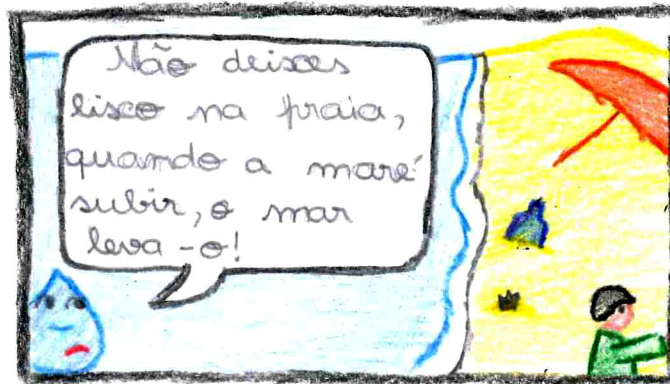 Não deixes
lixo na praia,
quando a maré
subir, o mar
leva-o!